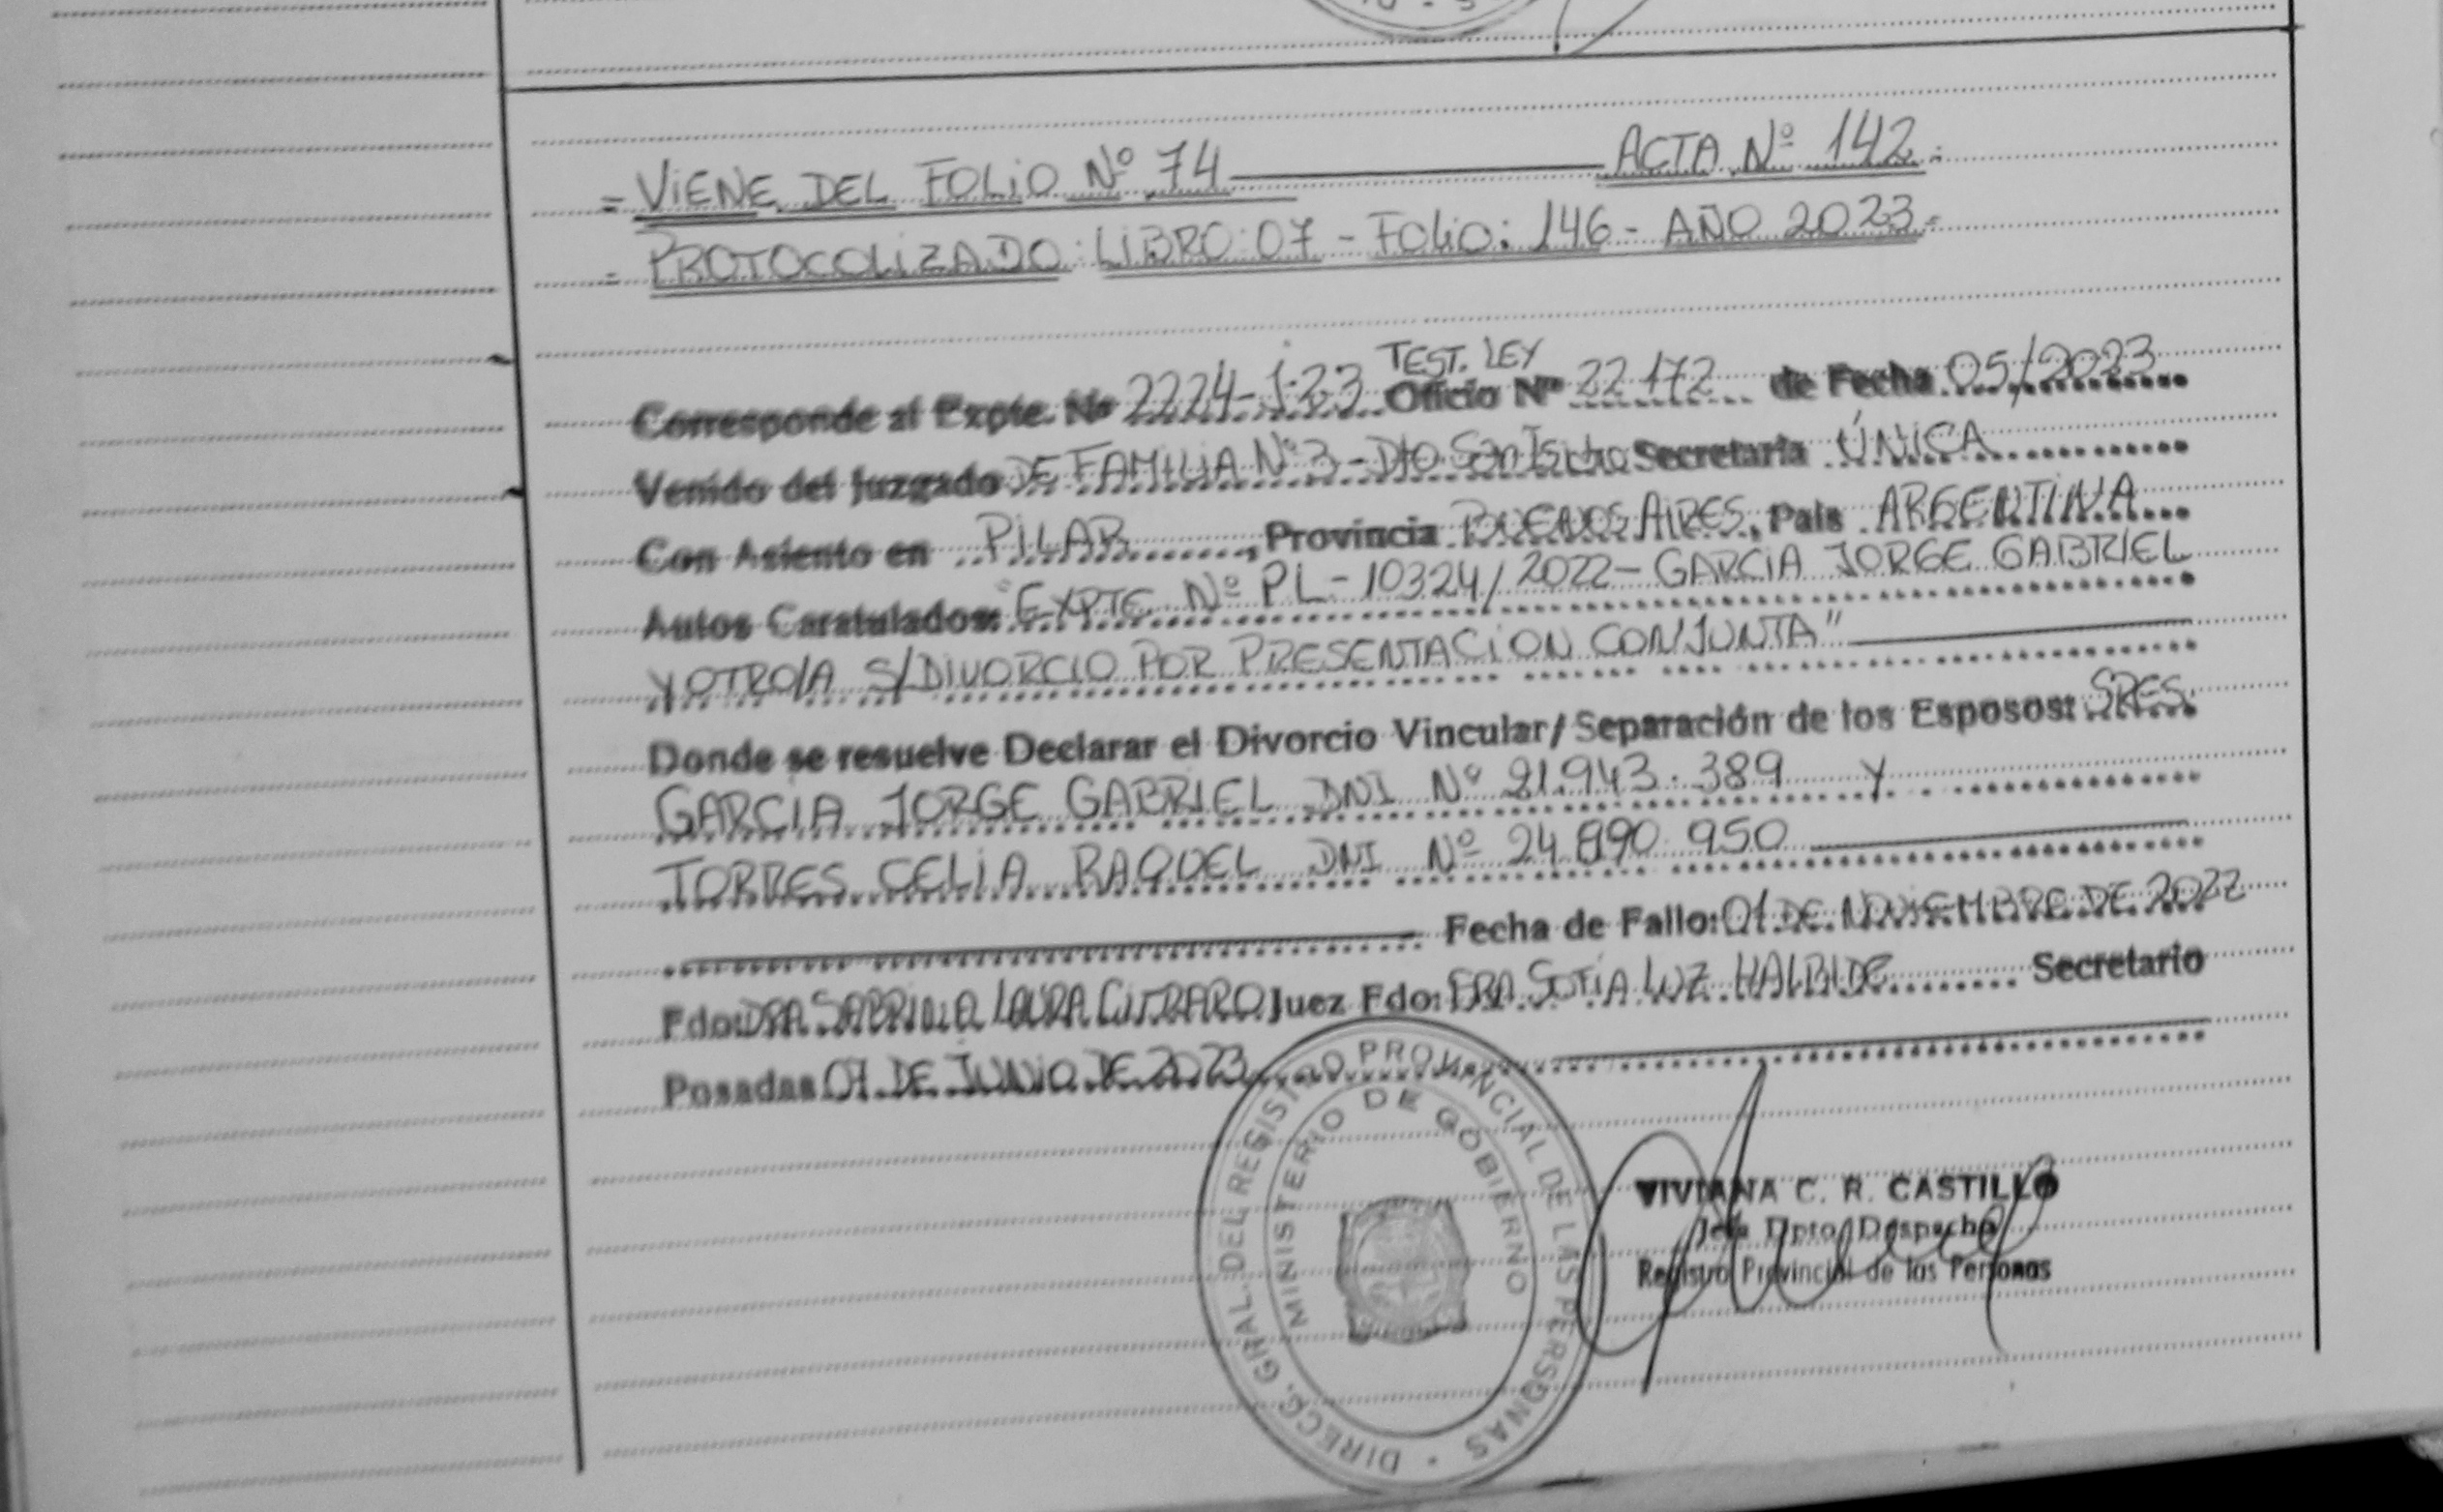 = VIENE DEL FOLIO Nº 74 ACTA Nº 142.-
= PROTOCOLIZADO: LIBRO: 07 - FOLIO: 146 - AÑO 2023.-
TEST. LEY
Corresponde al Expte. Nº 2224-J-23 Oficio Nº 22.172 de Fecha 05/2023
Venido del Juzgado DE FAMILIA Nº 3 - Dto San Isidro Secretaría ÚNICA
Con Asiento en PILAR, Provincia BUENOS AIRES, País ARGENTINA
Autos Caratulados: "EXPTE. Nº PL-10324/2022- GARCIA JORGE GABRIEL
Y OTRO/A S/DIVORCIO POR PRESENTACION CONJUNTA"
Donde se resuelve Declarar el Divorcio Vincular/Separación de los Esposos: SRES.
GARCIA JORGE GABRIEL DNI Nº 21.943.389 Y
TORRES CELIA RAQUEL DNI Nº 24.890.950
Fecha de Fallo: 01 DE NOVIEMBRE DE 2022
Fdo: DRA SABRINA LAURA Juez Fdo: SOFIA LUZ Secretario
Posadas 07 DE JUNIO DE 2023
DIRECC. GRAL. DEL REGISTRO PROVINCIAL DE LAS PERSONAS
MINISTERIO DE GOBIERNO
VIVIANA C. R. CASTILLO
Jefa Dpto. Despacho
Registro Provincial de las Personas